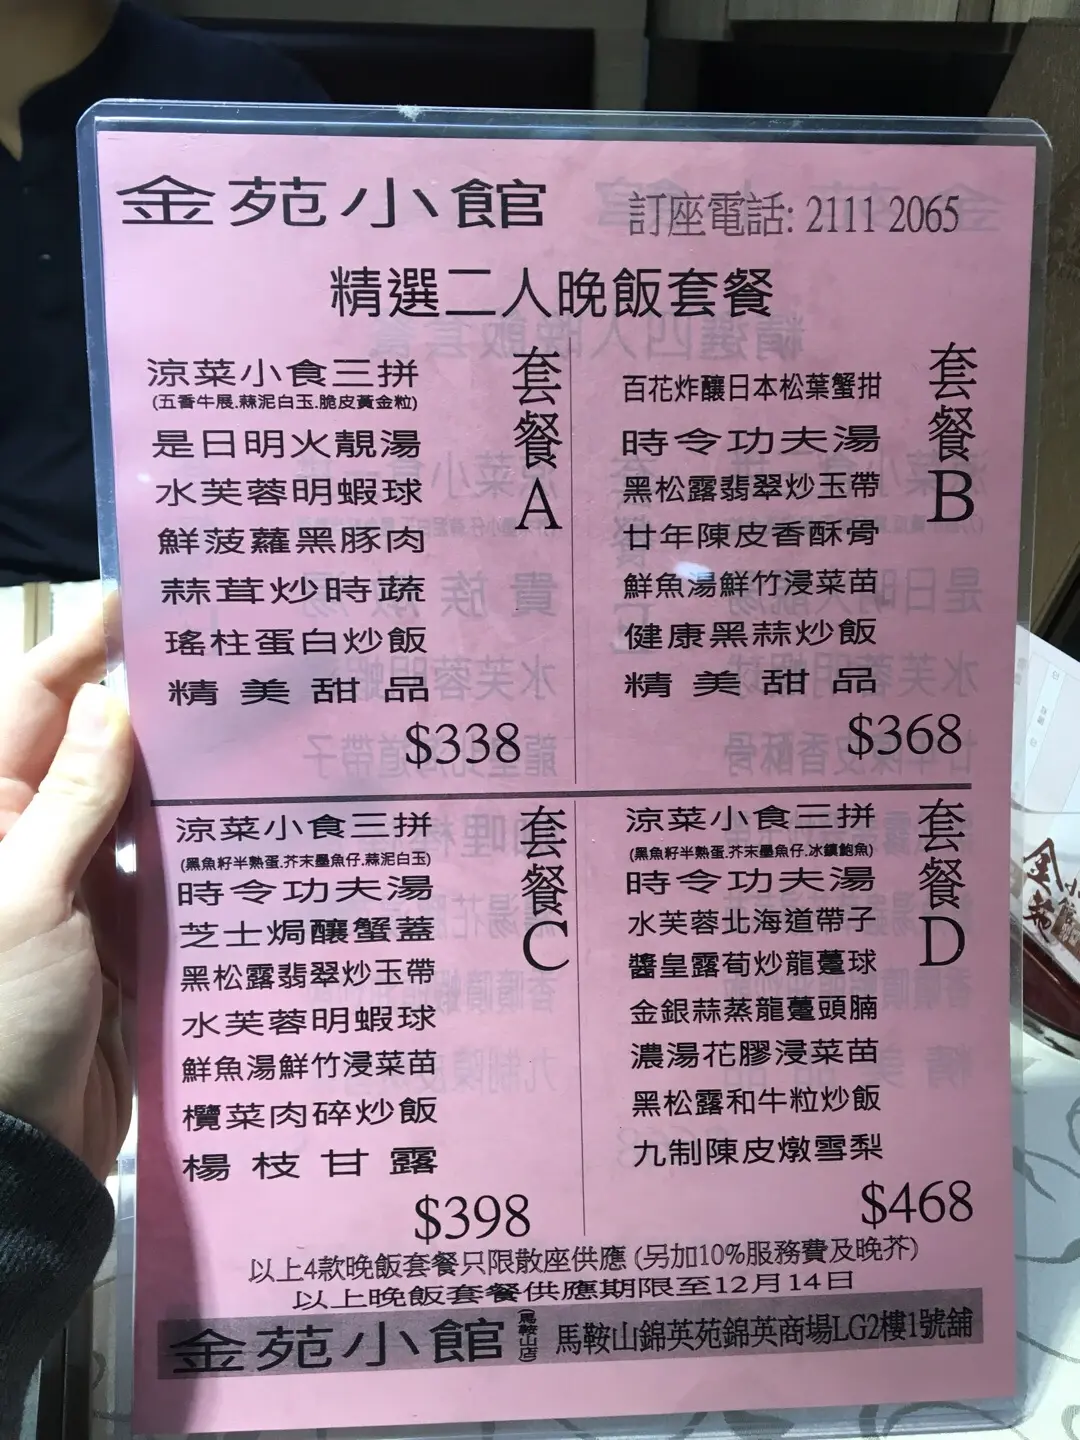 金苑小館
訂座電話: 2111 2065
精選二人晚飯套餐
套餐A
涼菜小食三拼
(五香牛展.蒜泥白玉.脆皮黃金粒)
是日明火靚湯
水芙蓉明蝦球
鮮菠蘿黑豚肉
蒜茸炒時蔬
瑤柱蛋白炒飯
精美甜品
$338
套餐B
百花炸釀日本松葉蟹拑
時令功夫湯
黑松露翡翠炒玉帶
廿年陳皮香酥骨
鮮魚湯鮮竹浸菜苗
健康黑蒜炒飯
精美甜品
$368
套餐C
涼菜小食三拼
(黑魚籽半熟蛋.芥末墨魚仔.蒜泥白玉)
時令功夫湯
芝士焗釀蟹蓋
黑松露翡翠炒玉帶
水芙蓉明蝦球
鮮魚湯鮮竹浸菜苗
欖菜肉碎炒飯
楊枝甘露
$398
套餐D
涼菜小食三拼
(黑魚籽半熟蛋.芥末墨魚仔.冰鎮鮑魚)
時令功夫湯
水芙蓉北海道帶子
醬皇露荀炒龍躉球
金銀蒜蒸龍躉頭腩
濃湯花膠浸菜苗
黑松露和牛粒炒飯
九制陳皮燉雪梨
$468
以上4款晚飯套餐只限散座供應 (另加10%服務費及晚芥)
以上晚飯套餐供應期限至12月14日
金苑小館
(馬鞍山店)
馬鞍山錦英苑錦英商場LG2樓1號舖